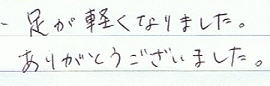 、足が軽くなりました。
ありがとうございました。